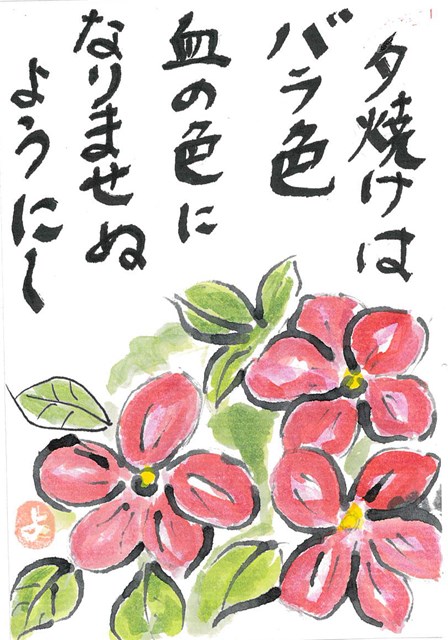 夕焼けは
バラ色
血の色に
なりませぬ
ように
よ